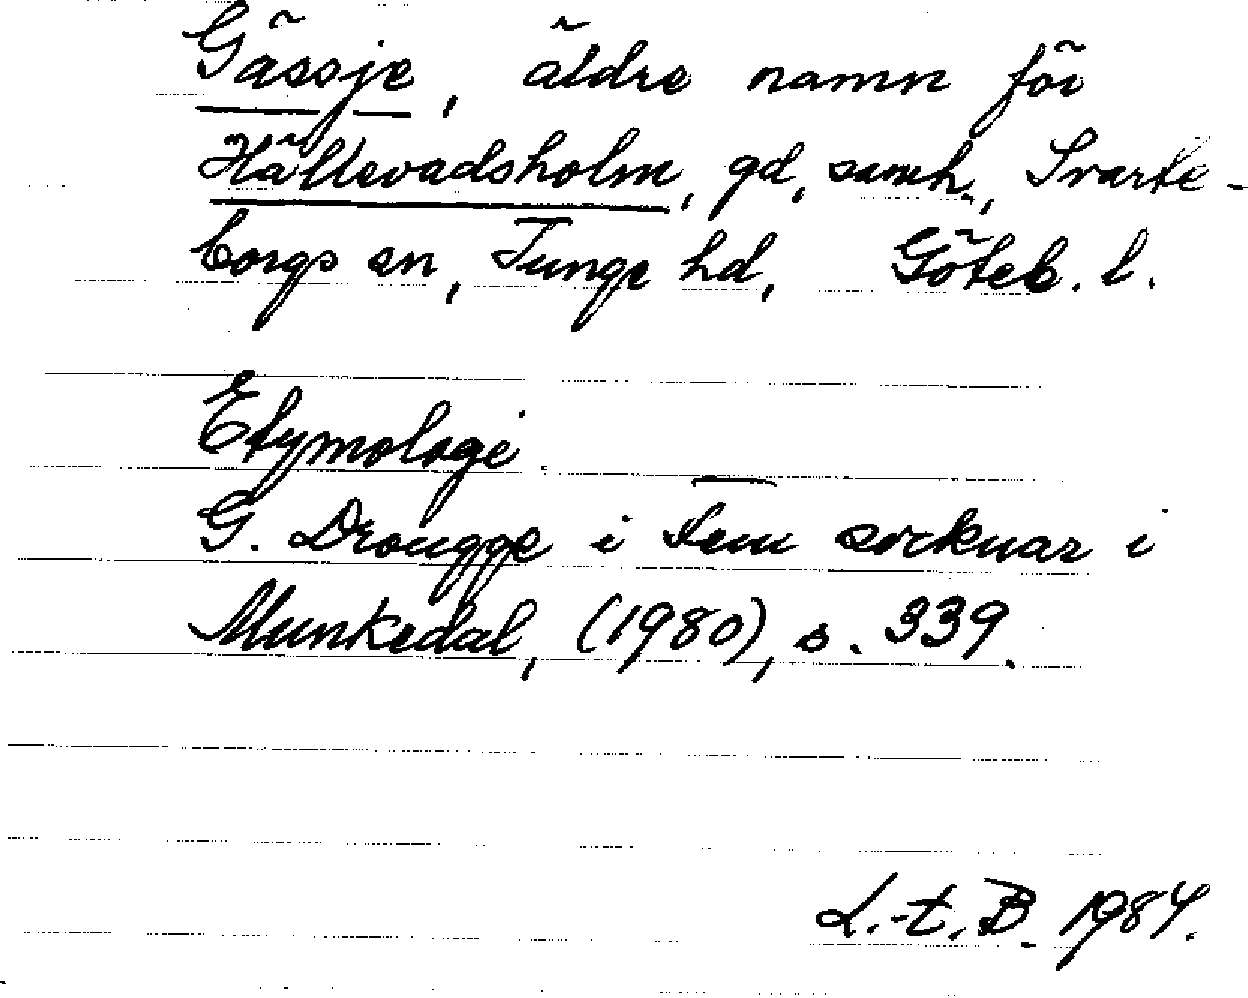 Gässje, äldre namn för
Hällevadsholm, gd, samh., Svarte-
borgs sn, Tunge hd, Göteb. l.
Etymologi.
G. Drougge i Fem socknar i
Munkedal, (1980), s. 339.
L.-t. B. 1984.